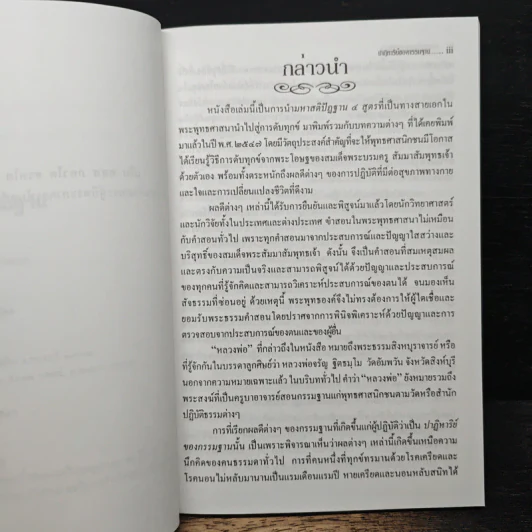 ปาฏิหาริย์ของกรรมฐาน ...... iii
กล่าวนำ
หนังสือเล่มนี้เป็นการนำมหาสติปัฏฐาน ๔ สูตรที่เป็นทางสายเอกใน
พระพุทธศาสนานำไปสู่การดับทุกข์ มาพิมพ์รวมกับบทความต่างๆ ที่ได้เคยพิมพ์
มาแล้วในปี พ.ศ. ๒๕๔๗ โดยมีวัตถุประสงค์สำคัญที่จะให้พุทธศาสนิกชนมีโอกาส
ได้เรียนรู้วิธีการดับทุกข์จากพระโอษฐของสมเด็จพระบรมครู สัมมาสัมพุทธเจ้า
ด้วยตัวเอง พร้อมทั้งตระหนักถึงผลดีต่างๆ ของการปฏิบัติที่มีต่อสุขภาพทางกาย
และใจและการเปลี่ยนแปลงชีวิตที่ดีงาม
ผลดีต่างๆ เหล่านี้ได้รับการยืนยันและพิสูจน์มาแล้วโดยนักวิทยาศาสตร์
และนักวิจัยทั้งในประเทศและต่างประเทศ คำสอนในพระพุทธศาสนาไม่เหมือน
กับคำสอนทั่วไป เพราะทุกคำสอนมาจากประสบการณ์และปัญญาใสสว่างและ
บริสุทธิ์ของสมเด็จพระสัมมาสัมพุทธเจ้า ดังนั้น จึงเป็นคำสอนที่สมเหตุสมผล
และตรงกับความเป็นจริงและสามารถพิสูจน์ได้ด้วยปัญญาและประสบการณ์
ของทุกคนที่รู้จักคิดและสามารถวิเคราะห์ประสบการณ์ของตนได้ จนมองเห็น
สัจธรรมที่ซ่อนอยู่ ด้วยเหตุนี้ พระพุทธองค์จึงไม่ทรงต้องการให้ผู้ใดเชื่อและ
ยอมรับพระธรรมคำสอนโดยปราศจากการพินิจพิเคราะห์ด้วยปัญญาและการ
ตรวจสอบจากประสบการณ์ของตนและของผู้อื่น
“หลวงพ่อ” ที่กล่าวถึงในหนังสือ หมายถึงพระธรรมสิงหบุราจารย์ หรือ
ที่รู้จักกันในบรรดาลูกศิษย์ว่า หลวงพ่อจรัญ ฐิตธมฺโม วัดอัมพวัน จังหวัดสิงห์บุรี
นอกจากความหมายเฉพาะแล้ว ในบริบททั่วไป คำว่า “หลวงพ่อ” ยังหมายรวมถึง
พระสงฆ์ที่เป็นครูบาอาจารย์สอนกรรมฐานแก่พุทธศาสนิกชนตามวัดหรือสำนัก
ปฏิบัติธรรมต่างๆ
การที่เรียกผลดีต่างๆ ของกรรมฐานที่เกิดขึ้นแก่ผู้ปฏิบัติว่าเป็น ปาฏิหาริย์
ของกรรมฐานนั้น เป็นเพราะพิจารณาเห็นว่าผลต่างๆ เหล่านี้เกิดขึ้นเหนือความ
นึกคิดของคนธรรมดาทั่วไป การที่คนหนึ่งที่ทุกข์ทรมานด้วยโรคเครียดและ
โรคนอนไม่หลับมานานเป็นแรมเดือนแรมปี หายเครียดและนอนหลับสนิทได้